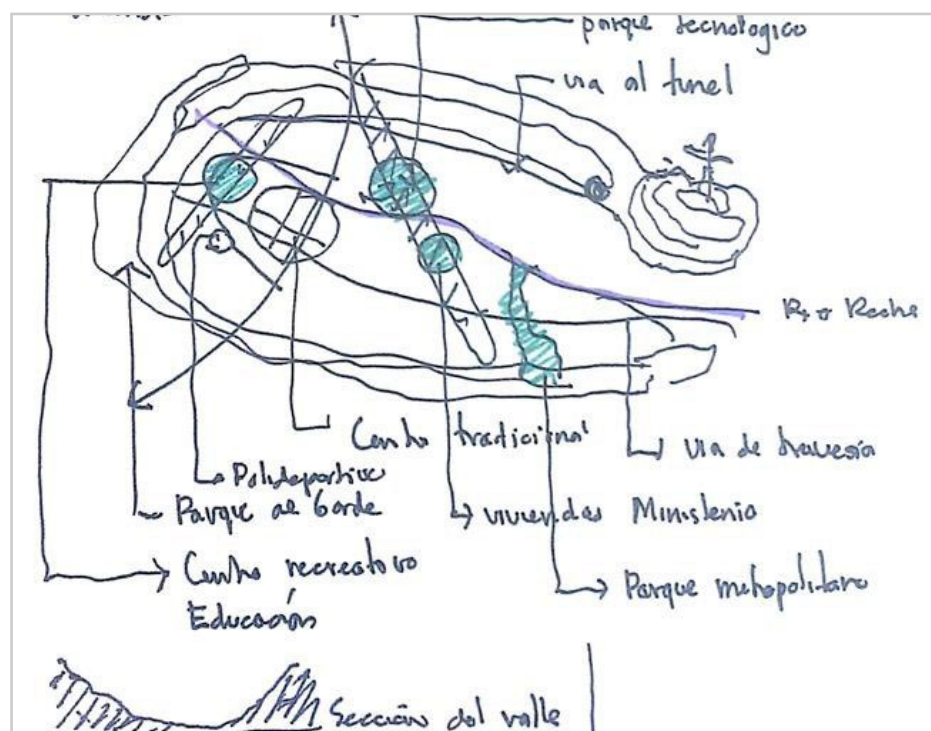 parque tecnologico
via al tunel
Rio Rocha
Centro tradicional
via de travesía
Polideportivo
Parque de borde
viviendas Ministerio
Centro recreativo
Educación
Parque metropolitano
Sección del valle